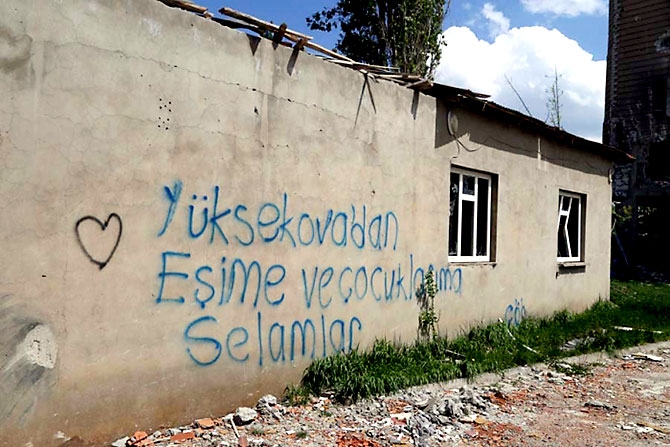 Yüksekova'dan
Eşime ve çocuklarıma
Selamlar